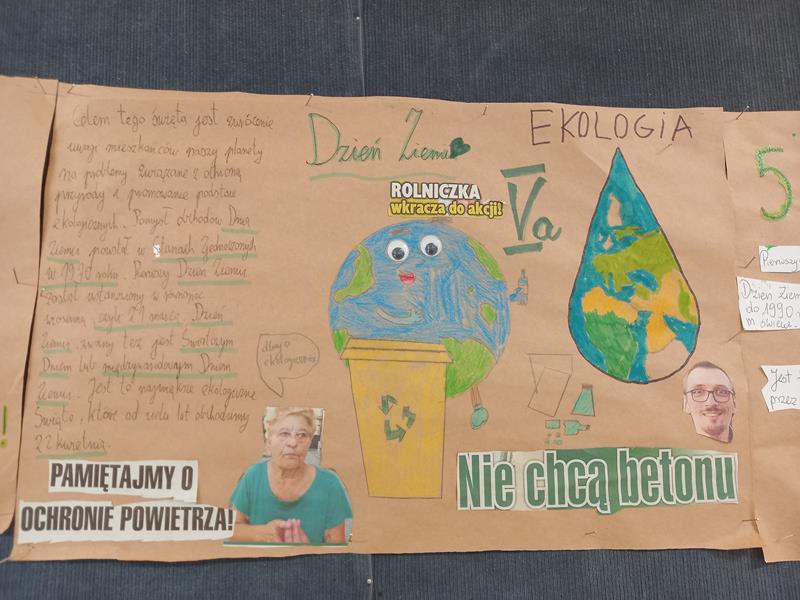 Celem tego święta jest zwrócenie
uwagi mieszkańców naszej planety
na problemy związane z ochroną
przyrody z promowanie postaw
ekologicznych. Pomysł obchodów Dnia
Ziemi powstał w Stanach Zjednoczonych
w 1970 roku. Pierwszy Dzień Ziemi
został ustanowiony w równonoc
wiosenną, czyli 21 marca. Dzień
Ziemi zwany też jest Światowym
Dniem lub międzynarodowym Dniem
Ziemi. Jest to największe ekologiczne
Święto, które od wielu lat obchodzimy
22 kwietnia.
PAMIĘTAJMY O
OCHRONIE POWIETRZA!
Dzień Ziemi
ROLNICZKA
wkracza do akcji!
Va
EKOLOGIA
Nie chcą betonu
5
Pierwszy
Dzień Ziem
do 1990 r
m świecie.
Jest
przez